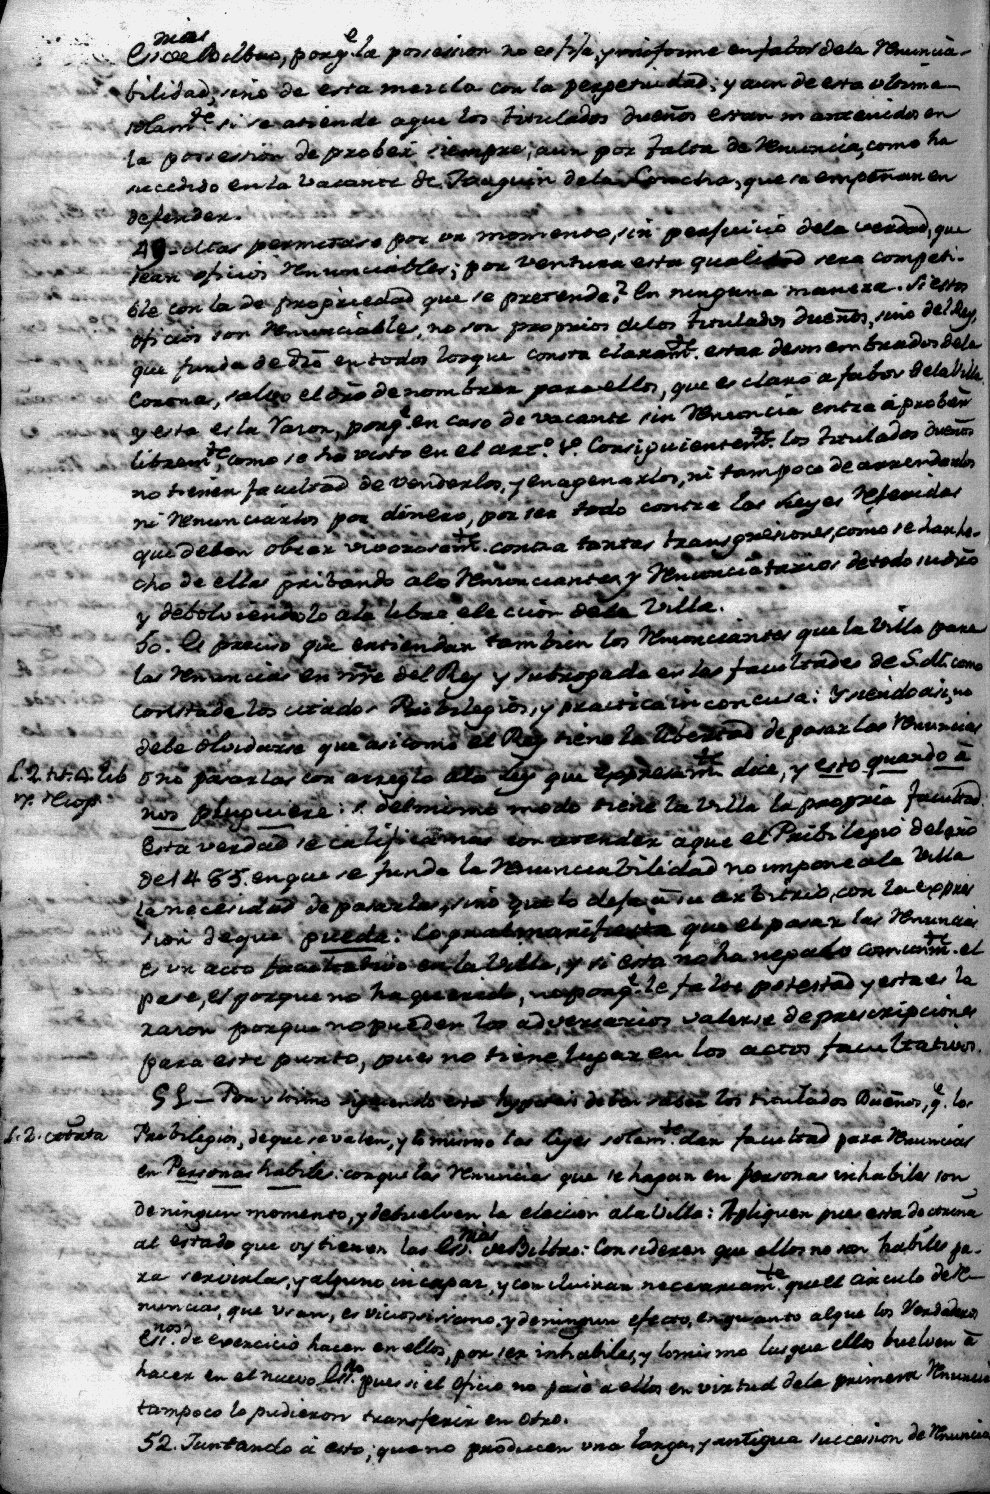 Esc.mias de Bilbao, porq.e la possession no es fixa, y uniforme en fabor de la renuncia-
bilidad, sino de esta mezcla con la perpetuidad; y aun de esta ultima
solam.te si se atiende aque los titulados dueños estan mantenidos en
la possession de probeer siempre, aun por falta de renuncia, como ha
sucedido en la vacante de Joaquin de la Concha, que se empeñan en
defender.
49. Mas permitase por un momento, sin perjuicio dela verdad, que
sean oficios renunciables; por ventura esta qualidad sera compati-
ble con la de propriedad que se pretende? En ninguna manera. Si estos
oficios son renunciables, no son proprios delos titulados dueños, sino del Rey,
que funda de dro en todos losque consta claram.te estar desmembrados dela
corona, salvo el dro de nombrar para ellos, que es claro a fabor dela Villa
y esta es la razon, porq.e en caso de vacante sin renuncia entra á probeer
librem.te, como se ha visto en el art.o Consiguientem.te los titulados dueños
no tienen facultad de venderlos, y enagenarlos, ni tampoco de arrendarlos
ni renunciarlos por dinero, por ser todo contra las Leyes referidas
que deben obrar vigorosam.te contra tantas transgresiones, como se han he-
cho de ellas pribando alos renunciantes, y renunciatarios de todo su dro
y debolviendolo ala libre eleccion dela Villa.
50. Es preciso que entiendan tambien los renunciantes que la Villa pasa
las renuncias en nre del Rey y subrogada en las facultades de S.M. como
consta de los citados Pribilegios, y practica inconcusa: Y siendo asi, no
debe olvidarse que asi como el Rey tiene la libertad de pasar las renuncias
L. 2. tit. 4. lib
7. Recop.
ono pasarlas con arreglo ala Ley que expresam.te dice, y esto quando á
nos pluguiere: del mismo modo tiene la Villa la propria facultad.
Esta verdad se califica mas con atender aque el Pribilegio del año
de 1485. en que se funda la renunciabilidad no impone ala Villa
la necesidad de pasarlas, sino que lo deja á su arbitrio, con la expre-
sion deque pueda: lo que manifiesta que el pasar las renuncias
es un acto facultativo en la Villa, y si esta no ha negado comunm.te el
pase, es porque no ha querido, no porq.e le falte potestad y esta es la
razon porque no pueden los adversarios valerse de prescripciones
para este punto, pues no tiene lugar en los actos facultativos.
51 – Por ultimo siguiendo esta hypotesi deben saber los titulados Dueños, q.e los
L. 2. citata
Pribilegios, deque se valen, y lo mismo las leyes solam.te dan facultad para renunciar
en Personas habiles: conque las renuncias que se hagan en personas inhabiles son
de ningun momento, y debuelven la eleccion ala Villa: Apliquen pues esta doctrina
al estado que oy tienen las Es.nias de Bilbao: Consideren que ellos no son habiles pa-
ra servirlas, y alguno incapaz, y concluiran necesariam.te que el circulo de re-
nuncias, que usan, es viciosissimo, y de ningun efecto, en quanto alque los Verdaderos
Es.nos de exercicio hacen en ellos, por ser inhabiles, y lo mismo las que ellos buelven á
hacer en el nuevo Es.no pues si el oficio no pasó a ellos en virtud dela primera renuncia
tampoco lo pudieron transferir en otro.
52. Juntando á esto, que no producen una larga, y antigua succession de renuncias